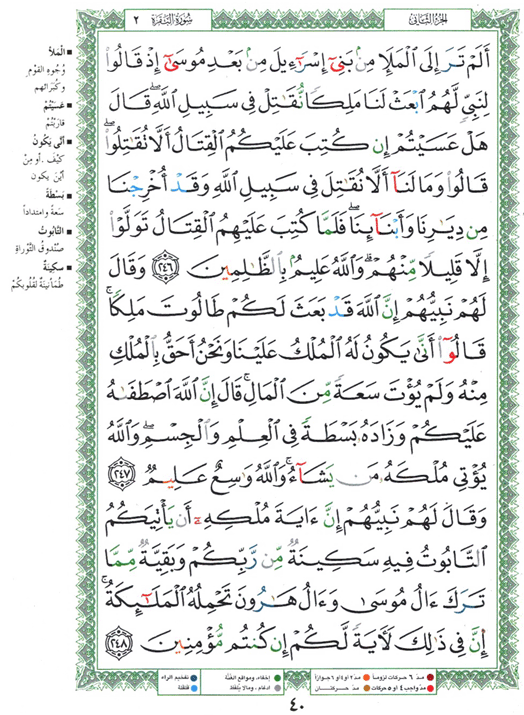 الجزء الثاني
سورة البقرة ٢
أَلَمْ تَرَ إِلَى ٱلْمَلَإِ مِنۢ بَنِىٓ إِسْرَٰٓءِيلَ مِنۢ بَعْدِ مُوسَىٰٓ إِذْ قَالُوا۟
لِنَبِىٍّ لَّهُمُ ٱبْعَثْ لَنَا مَلِكًا نُّقَٰتِلْ فِى سَبِيلِ ٱللَّهِ ۖ قَالَ
هَلْ عَسَيْتُمْ إِن كُتِبَ عَلَيْكُمُ ٱلْقِتَالُ أَلَّا تُقَٰتِلُوا۟ ۖ
قَالُوا۟ وَمَا لَنَآ أَلَّا نُقَٰتِلَ فِى سَبِيلِ ٱللَّهِ وَقَدْ أُخْرِجْنَا
مِن دِيَٰرِنَا وَأَبْنَآئِنَا ۖ فَلَمَّا كُتِبَ عَلَيْهِمُ ٱلْقِتَالُ تَوَلَّوْا۟
إِلَّا قَلِيلًا مِّنْهُمْ ۗ وَٱللَّهُ عَلِيمٌۢ بِٱلظَّٰلِمِينَ ﴿٢٤٦﴾ وَقَالَ
لَهُمْ نَبِيُّهُمْ إِنَّ ٱللَّهَ قَدْ بَعَثَ لَكُمْ طَالُوتَ مَلِكًا ۚ
قَالُوٓا۟ أَنَّىٰ يَكُونُ لَهُ ٱلْمُلْكُ عَلَيْنَا وَنَحْنُ أَحَقُّ بِٱلْمُلْكِ
مِنْهُ وَلَمْ يُؤْتَ سَعَةً مِّنَ ٱلْمَالِ ۚ قَالَ إِنَّ ٱللَّهَ ٱصْطَفَىٰهُ
عَلَيْكُمْ وَزَادَهُۥ بَسْطَةً فِى ٱلْعِلْمِ وَٱلْجِسْمِ ۖ وَٱللَّهُ
يُؤْتِى مُلْكَهُۥ مَن يَشَآءُ ۚ وَٱللَّهُ وَٰسِعٌ عَلِيمٌ ﴿٢٤٧﴾
وَقَالَ لَهُمْ نَبِيُّهُمْ إِنَّ ءَايَةَ مُلْكِهِۦٓ أَن يَأْتِيَكُمُ
ٱلتَّابُوتُ فِيهِ سَكِينَةٌ مِّن رَّبِّكُمْ وَبَقِيَّةٌ مِّمَّا
تَرَكَ ءَالُ مُوسَىٰ وَءَالُ هَٰرُونَ تَحْمِلُهُ ٱلْمَلَٰٓئِكَةُ ۚ
إِنَّ فِى ذَٰلِكَ لَءَايَةً لَّكُمْ إِن كُنتُم مُّؤْمِنِينَ ﴿٢٤٨﴾
■ الملأ
وُجوهِ القوْمِ
وكُبَرَائِهِم
■ عَسَيْتُمْ
قارَبْتُمْ
■ أنّى يَكُونُ
كيْفَ . أو مِنْ
أيْنَ يكون
■ بَسْطَةً
سَعَةً وامتداداً
■ التّابُوتُ
صُنْدوقُ التَّوْراةِ
■ سكِينَةٌ
طُمَأْنِينَةٌ لقُلُوبِكُمْ
مدّ ٦ حركات لزوماً مدّ ٢ أو ٤ أو ٦ جوازاً
مدّ واجب ٤ أو ٥ حركات مدّ حركتــان
إخفاء، ومواقع الغُنَّة
ادغام، وما لا يُلفَظ
تفخيم الراء
قلقلة
٤٠